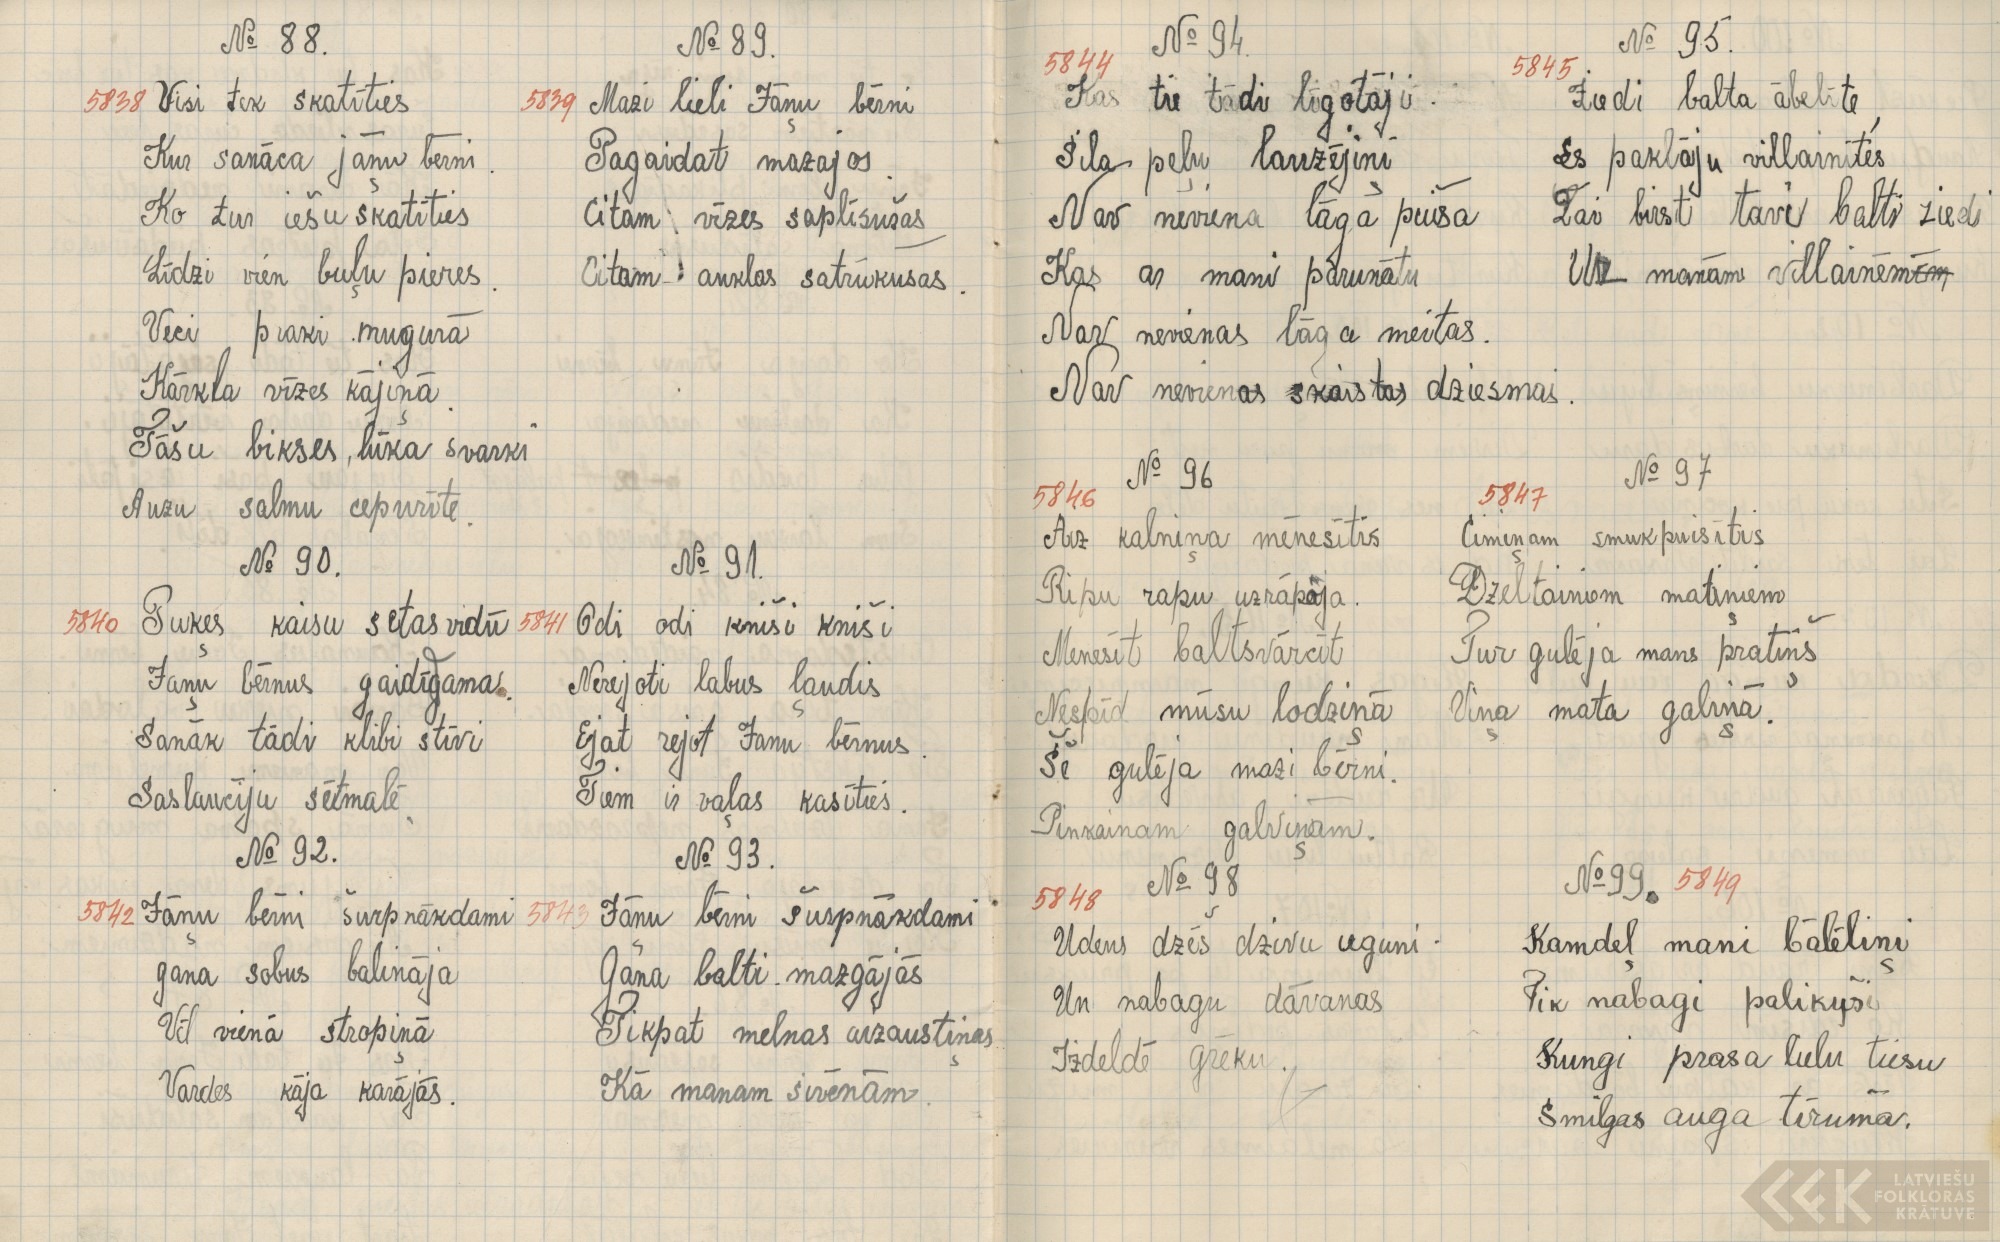 № 88.
5838 Visi tek skatīties
Kur sanāca jāņu bērni.
Ko tur iešu skatīties
Līdzi vien buļu pieres.
Veci puaki mugurā
Kārkla vīzes kājiņā.
Tāšu bikses, lūka svarki
Auzu salmu cepurīte.
№ 89.
5839 Mazi lieli Jāņu bērni
Pagaidat mazajos.
Citam vīzes saplīsušas
Citam auklas satrūkušas.
№ 90.
5840 Puķes kaisu sētasvidū
Jaņu bērnus gaidīgama.
Sanāk tādi klibi stīvi
Saslaucīju sētmalē.
№ 91.
5841 Odi odi kniši kniši
Nerejoti labus ļaudis
Ejat rejot Janu bērnus.
Tiem ir vaļas kasīties.
№ 92.
5842 Jāņu bērni šurpnākdami
gana sobus balināja
Vēl vienā stropiņā
Vardes kāja karājās.
№ 93.
5843 Jāņu bērni šurpnākdami
Gāna balti mazgājās
Tikpat melnas aizaustiņas
Kā manam sivēnām.
№ 94.
5844
Kas tie tādi līgotāji.
Sila peļu lauzējini
Nav neviena lāga puiša
Kas ar mani parunātu
Nav nevienas lāga meitas.
Nav nevienas skaistas dziesmas.
№ 95.
5845.
Ziedi balta ābelīte,
Es paklāju villainītēs
Lai birst tavi balti ziedi
Uz manām villainēm
№ 96
5846
Aiz kalniņa mēnesītis
Ripu rapu uzrāpaja.
Menesīt baltsvārcīt
Nespīd mūsu lodziņā
Še gulēja mazi bērni.
Pinkainam galviņām.
№ 97
5847
Cimiņam smukpuisītis
Dzeltainiem matiņiem
Tur gulēja mans pratiņš
Viņa mata galiņā.
№ 98
5848
Udens dzēš dzivu uguni.
Un nabagu dāvanas
Izdeldē grēku.
№ 99. 5849
Kamdeļ mani bālēliņi
Tik nabagi palikuši
Kungi prasa lielu tiesu
Smilgas auga tīrumā.
LATVIEŠU
FOLKLORAS
KRĀTUVE